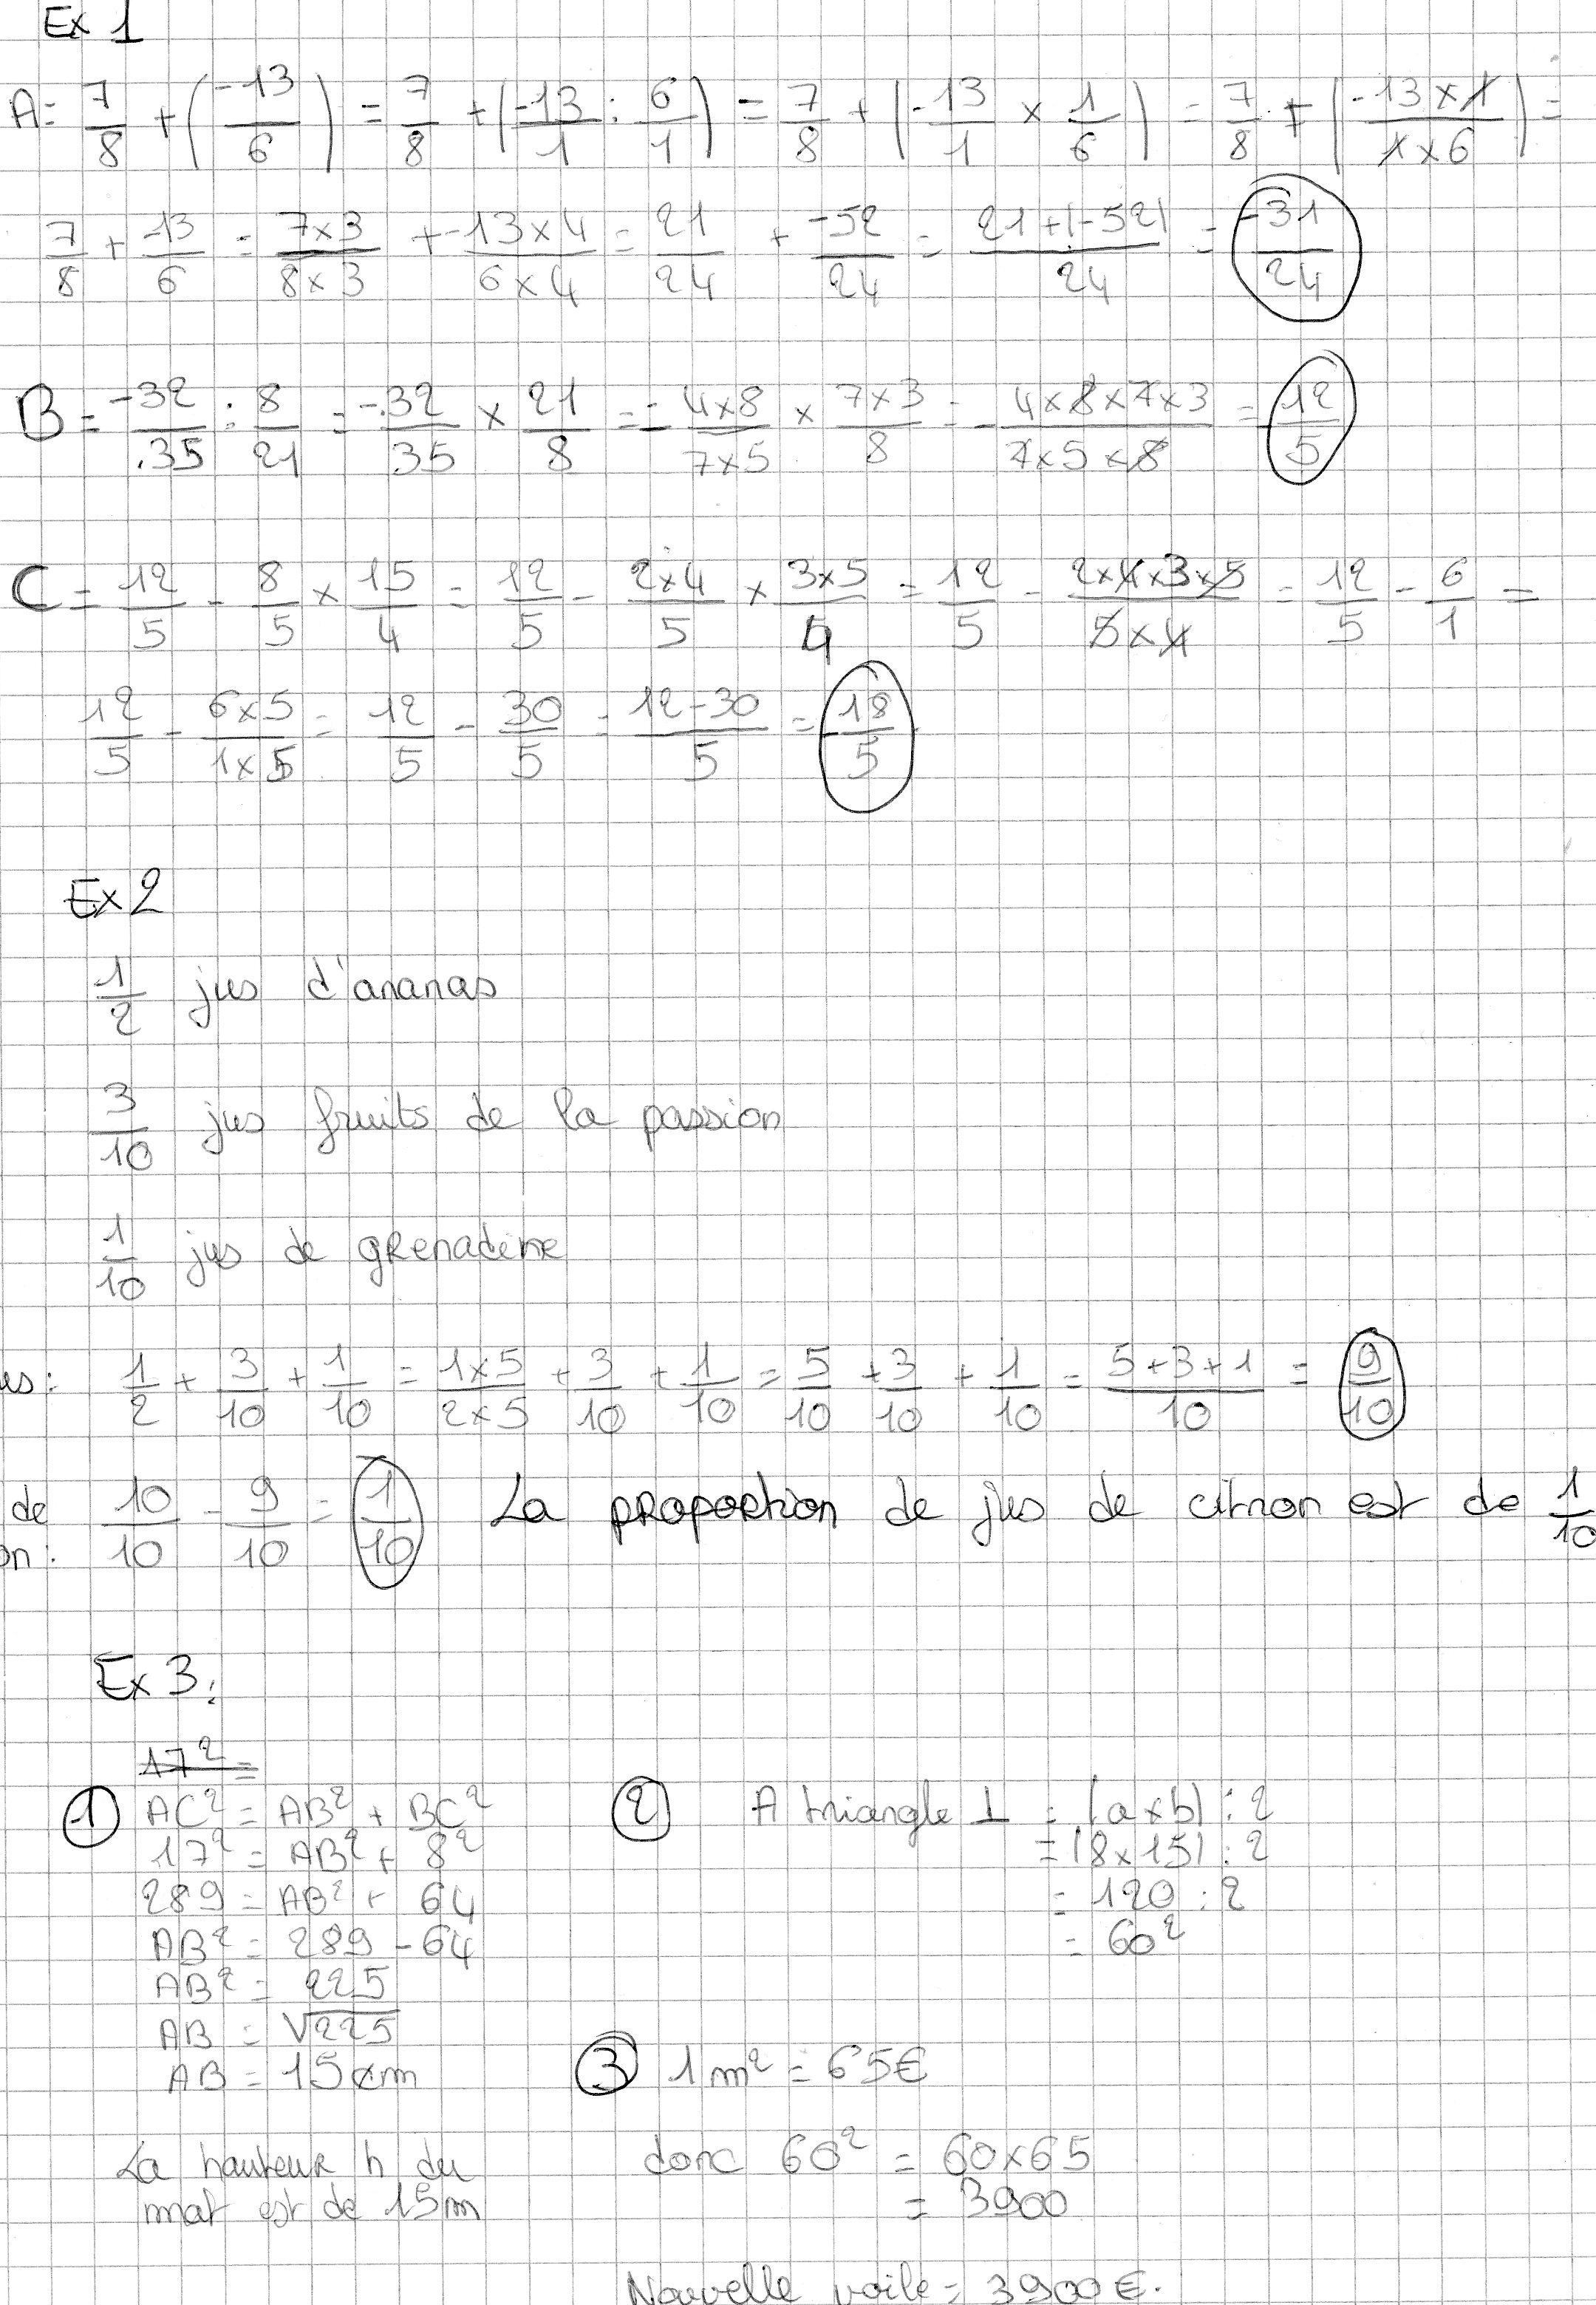 Ex 1
A = 7/8 + (-13/6) = 7/8 + (-13/1 : 6/1) = 7/8 + (-13/1 × 1/6) = 7/8 + (-13×1/1×6) =
7/8 + -13/6 = 7×3/8×3 + -13×4/6×4 = 21/24 + -52/24 = 21+(-52)/24 = -31/24
B = -32/35 : 8/21 = -32/35 × 21/8 = - 4×8/7×5 × 7×3/8 = - 4×8×7×3/7×5×8 = -12/5
C = 12/5 - 8/5 × 15/4 = 12/5 - 2×4/5 × 3×5/4 = 12/5 - 2×4×3×5/5×4 = 12/5 - 6/1 =
12/5 - 6×5/1×5 = 12/5 - 30/5 = 12-30/5 = -18/5
Ex 2
1/2 jus d'ananas
3/10 jus fruits de la passion
1/10 jus de grenadine
us: 1/2 + 3/10 + 1/10 = 1×5/2×5 + 3/10 + 1/10 = 5/10 + 3/10 + 1/10 = 5+3+1/10 = 9/10
de
on: 10/10 - 9/10 = 1/10 La proportion de jus de citron est de 1/10
Ex 3:
17² =
① AC² = AB² + BC²
17² = AB² + 8²
289 = AB² + 64
AB² = 289 - 64
AB² = 225
AB = √225
AB = 15 m
La hauteur h du
mat est de 15m
② A triangle ⊥ = (a×b) : 2
= (8×15) : 2
= 120 : 2
= 60²
③ 1 m² = 65€
donc 60² = 60×65
= 3900
Nouvelle voile = 3900€.